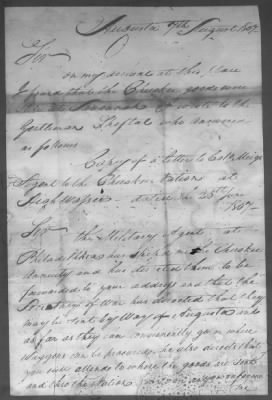 Augusta 9th August 1807.
Sir
on my arrival at this place
I found that the Cherokee goods were
at Savannah I wrote to the
Gentleman who answered
as follows
Copy of a letter to Colo Meigs
Agent to the Cherokee Nation at
High Wassee dated 23d June
1807.
Sir the Military Agent at
Philadelphia has shiped me Cherokee
annuity and has directed them to be
forwarded to your address and that the
Secretary of War has directed that they
may be sent by Way of Augusta into
as far as they can conveniently go where
Waggons can be procured he also directs that
you will attend to where the goods are sent
and thro the Nation